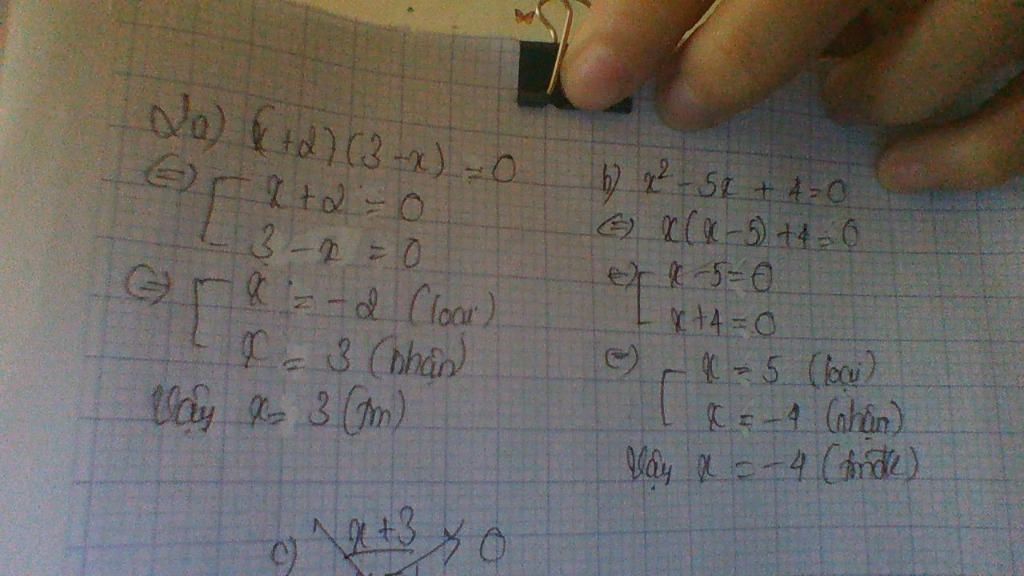 2a) (x+2)(3-x) = 0
<=> [ x+2 = 0
3-x = 0
<=> [ x = -2 (loại)
x = 3 (nhận)
Vậy x = 3 (tm)
b) x² - 5x + 4 = 0
<=> x(x-5) + 4 = 0
<=> [ x-5 = 0
x+4 = 0
<=> [ x = 5 (loại)
x = -4 (nhận)
Vậy x = -4 (tmđk)
c) x+3 > 0